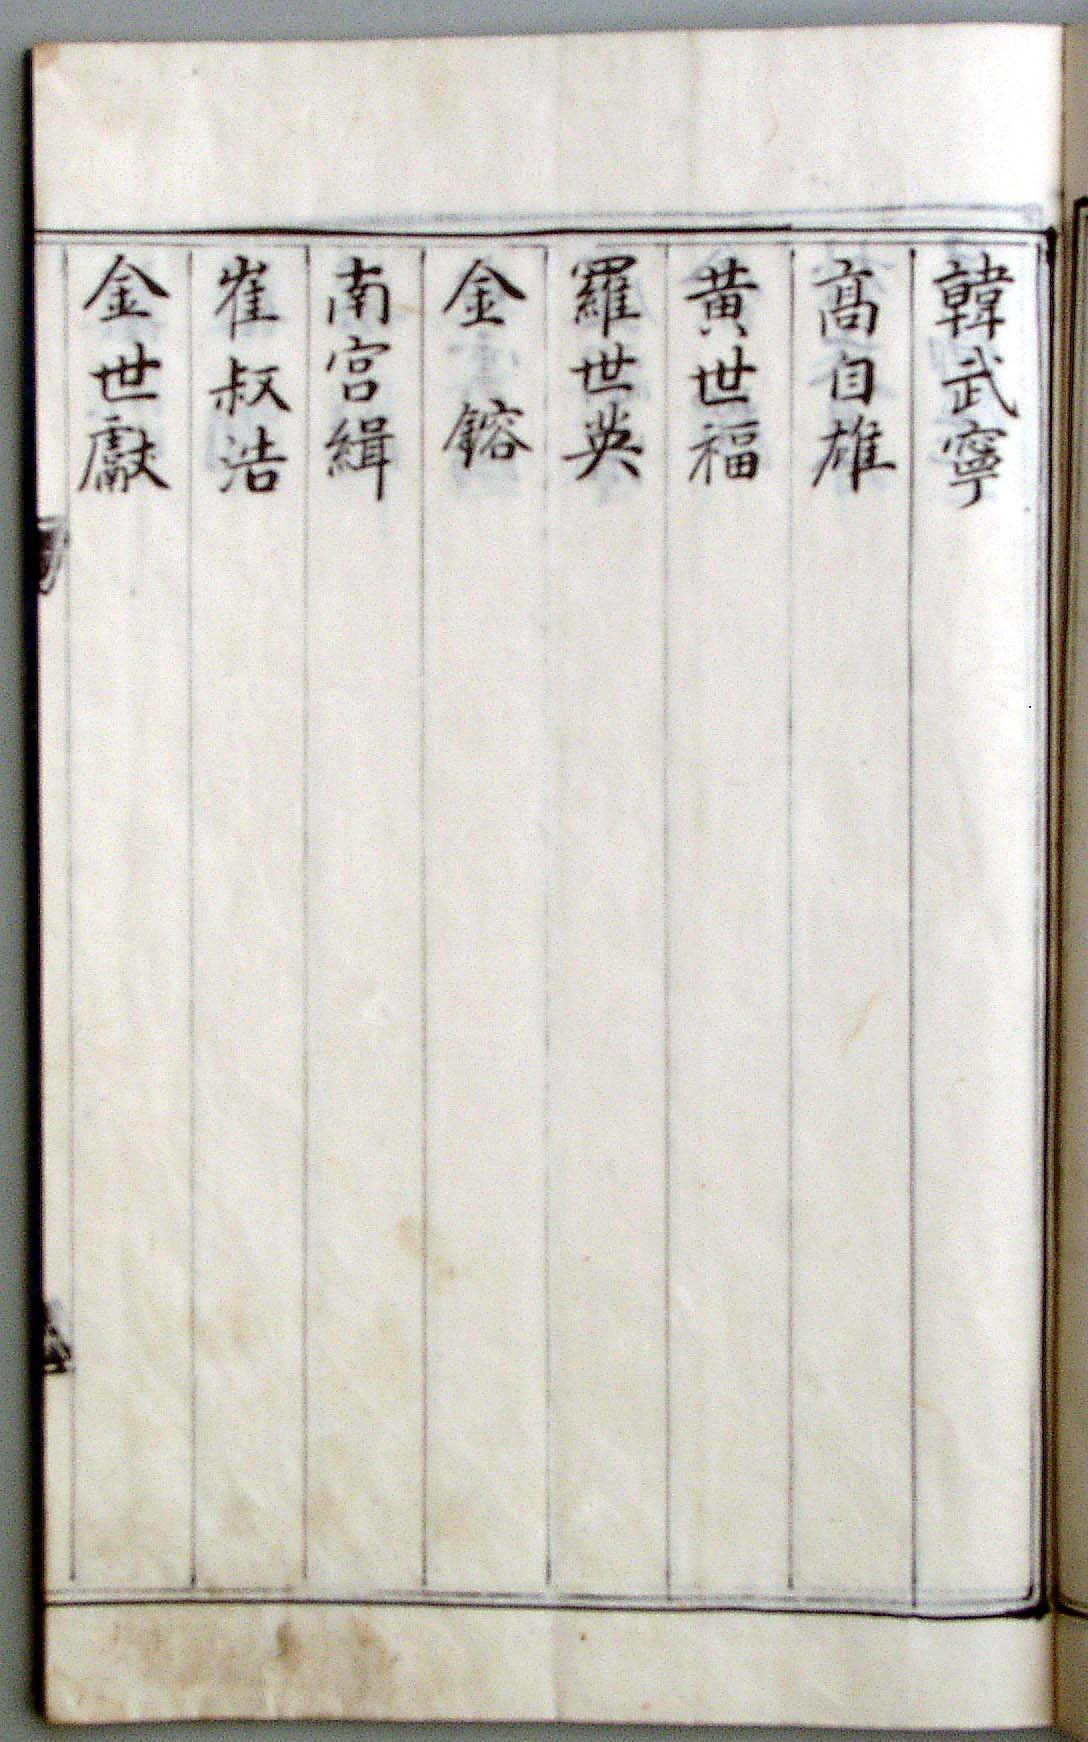 韓武寧
髙自雄
黄世福
羅世英
金鎔
南宫緝
崔叔浩
金世獻